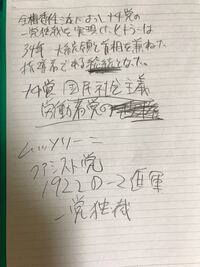 全権委任法によってナチ党の
一党独裁を実現したヒトラーは
34年 大統領と首相を兼ねた
指導者である総統となった。
ナチ党 国民社会主義
労働者党の
ムッソリーニ
ファシスト党
1922 ローマ進軍
一党独裁